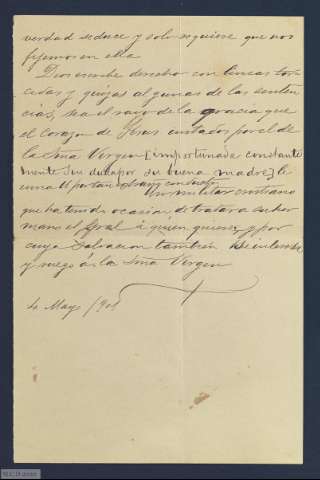 verdad seduce y solo requiere que nos
fijemos en ella
Dios escribe derecho con lineas tor
cidas y quizas algunas de las senten
cias, sea el rayo de la gracia que
el Corazon de Jesus
la Sma Vergen [importunada constante
mente sin duda por su buena madre] le
un militar cristiano
que ha tenido ocasion de tratar a su her
mano el Gral á quien quiere y por
cuya Salvacion tambien se interesa
y ruega á la Sma Vergen
4 Mayo/901